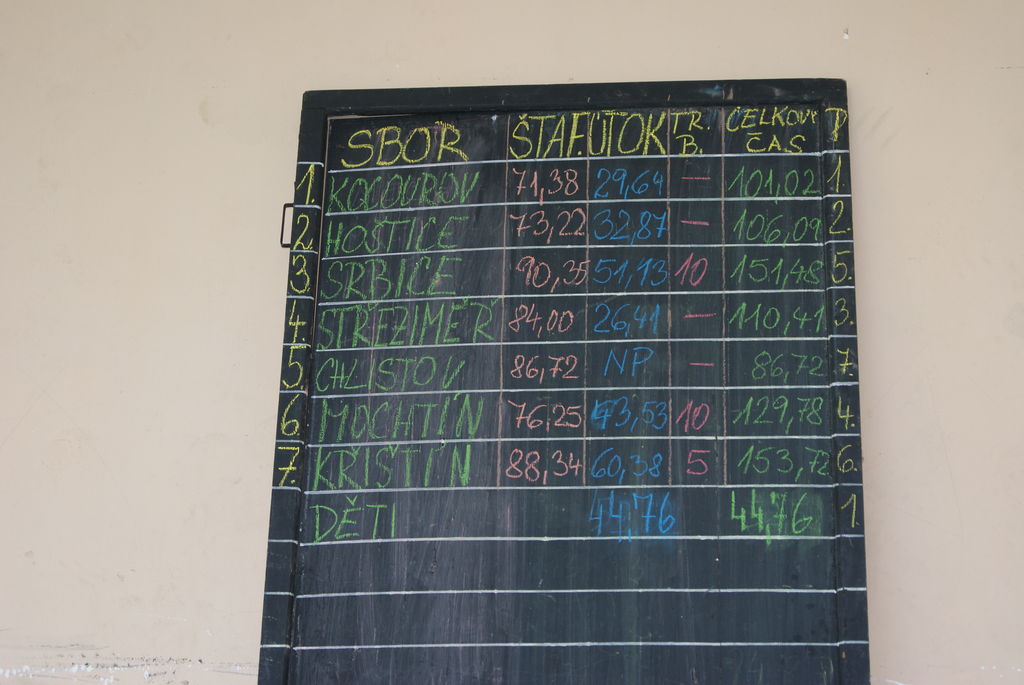 SBOR ŠTAF. ÚTOK TR. B. CELKOVÝ ČAS P
1. KOCOUROV 71,38 29,64 — 101,02 1.
2. HOSTICE 73,22 32,87 — 106,09 2.
3. SRBICE 90,35 51,13 10 151,48 5.
4. STŘEZIMĚŘ 84,00 26,41 — 110,41 3.
5. CHLISTOV 86,72 NP — 86,72 7.
6. MOCHTÍN 76,25 43,53 10 129,78 4.
7. KŘIŠTÍN 88,34 60,38 5 153,72 6.
DĚTI 44,76 44,76 1.